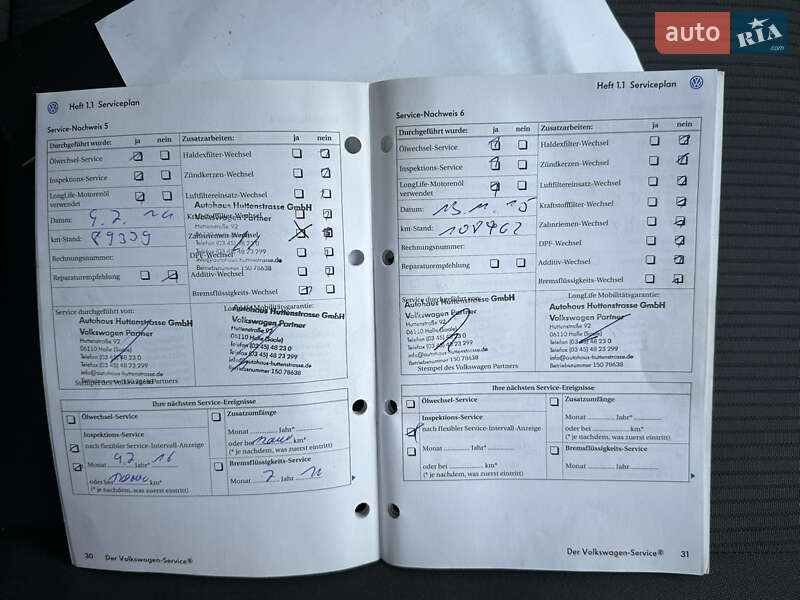 auto RIA .com
Heft 1.1 Serviceplan
Service-Nachweis 5
Durchgeführt wurde: ja nein Zusatzarbeiten: ja nein
Ölwechsel-Service Haldexfilter-Wechsel
Inspektions-Service Zündkerzen-Wechsel
LongLife-Motorenöl verwendet Luftfiltereinsatz-Wechsel
Autohaus Huttenstrasse GmbH
Datum: Kraftstofffilter-Wechsel
Volkswagen Partner
Huttenstraße 92
km-Stand: 89339 Zahnriemen-Wechsel
Telefon (03 45) 48 23 0
Telefax (03 45) 48 23 299
Rechnungsnummer: DPF-Wechsel
info@autohaus-huttenstrasse.de
Betriebsnummer 150 78638
Reparaturempfehlung Additiv-Wechsel
Bremsflüssigkeits-Wechsel
Service durchgeführt von:
Autohaus Huttenstrasse GmbH
Volkswagen Partner
Huttenstraße 92
06110 Halle (Saale)
Telefon (03 45) 48 23 0
Telefax (03 45) 48 23 299
info@autohaus-huttenstrasse.de
Betriebsnummer 150 78638
Stempel des Volkswagen Partners
LongLife Mobilitätsgarantie:
Autohaus Huttenstrasse GmbH
Volkswagen Partner
Huttenstraße 92
06110 Halle (Saale)
Telefon (03 45) 48 23 0
Telefax (03 45) 48 23 299
info@autohaus-huttenstrasse.de
Betriebsnummer 150 78638
Ihre nächsten Service-Ereignisse
Ölwechsel-Service
Inspektions-Service
nach flexibler Service-Intervall-Anzeige
Monat Jahr*
oder bei km*
(* je nachdem, was zuerst eintritt)
Zusatzumfänge
Monat Jahr*
oder bei km*
(* je nachdem, was zuerst eintritt)
Bremsflüssigkeits-Service
Monat 7 Jahr
30 Der Volkswagen-Service®
Heft 1.1 Serviceplan
Service-Nachweis 6
Durchgeführt wurde: ja nein Zusatzarbeiten: ja nein
Ölwechsel-Service Haldexfilter-Wechsel
Inspektions-Service Zündkerzen-Wechsel
LongLife-Motorenöl verwendet Luftfiltereinsatz-Wechsel
Datum: 13.11.15 Kraftstofffilter-Wechsel
km-Stand: Zahnriemen-Wechsel
Rechnungsnummer: DPF-Wechsel
Reparaturempfehlung Additiv-Wechsel
Bremsflüssigkeits-Wechsel
Service durchgeführt von:
Autohaus Huttenstrasse GmbH
Volkswagen Partner
Huttenstraße 92
06110 Halle (Saale)
Telefon (03 45) 48 23 0
Telefax (03 45) 48 23 299
info@autohaus-huttenstrasse.de
Betriebsnummer 150 78638
Stempel des Volkswagen Partners
LongLife Mobilitätsgarantie:
Autohaus Huttenstrasse GmbH
Volkswagen Partner
Huttenstraße 92
06110 Halle (Saale)
Telefon (03 45) 48 23 0
Telefax (03 45) 48 23 299
info@autohaus-huttenstrasse.de
Betriebsnummer 150 78638
Stempel des Volkswagen Partners
Ihre nächsten Service-Ereignisse
Ölwechsel-Service
Inspektions-Service
nach flexibler Service-Intervall-Anzeige
Monat Jahr*
oder bei km*
(* je nachdem, was zuerst eintritt)
Zusatzumfänge
Monat Jahr*
oder bei km*
(* je nachdem, was zuerst eintritt)
Bremsflüssigkeits-Service
Monat Jahr
Der Volkswagen-Service® 31